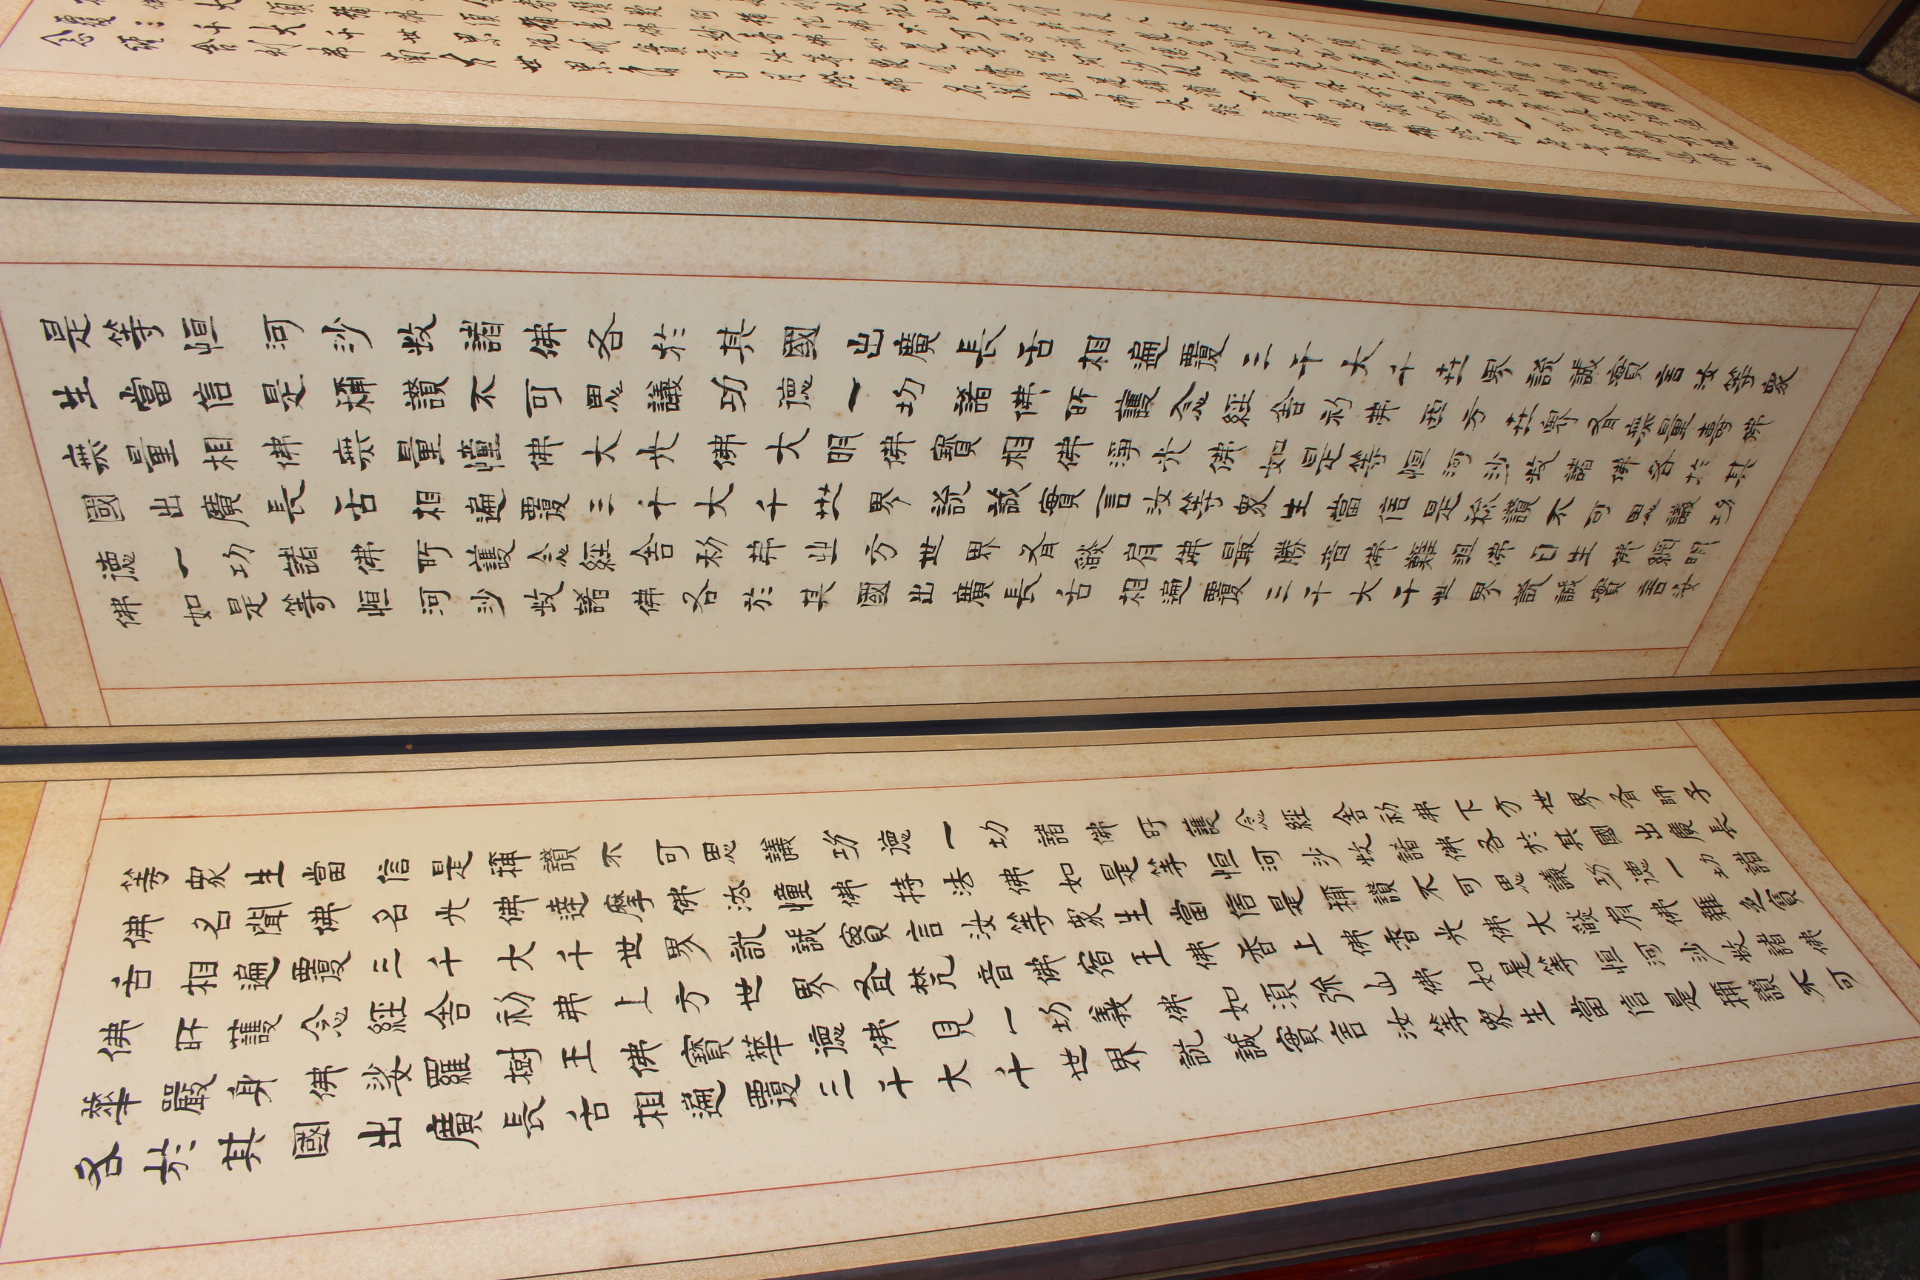 覆三千大千世界說誠實言汝等衆生當信是稱讚不可思議功德一切諸佛所護
念經舍利弗南方世界有日月燈佛名聞光佛大燄肩佛須彌燈佛無量精進佛如
是等恒河沙数諸佛各於其國出廣長舌相遍覆三千大千世界説誠實言汝等衆
生當信是稱讚不可思議功德一切諸佛所護念經舍利弗西方世界有無量壽佛
無量相佛無量幢佛大光佛大明佛寶相佛淨光佛如是等恒河沙数諸佛各於其
國出廣長舌相遍覆三千大千世界説誠實言汝等衆生當信是稱讚不可思議功
德一切諸佛所護念經舍利弗北方世界有燄肩佛最勝音佛難沮佛日生佛網明
佛如是等恒河沙数諸佛各於其國出廣長舌相遍覆三千大千世界説誠實言汝
等衆生當信是稱讚不可思議功德一切諸佛所護念經舍利弗下方世界有師子
佛名聞佛名光佛達摩佛法幢佛持法佛如是等恒河沙数諸佛各於其國出廣長
舌相遍覆三千大千世界説誠實言汝等衆生當信是稱讚不可思議功德一切諸
佛所護念經舍利弗上方世界有梵音佛宿王佛香上佛香光佛大燄肩佛雜色寶
華嚴身佛娑羅樹王佛寶華德佛見一切義佛如須彌山佛如是等恒河沙数諸佛
各於其國出廣長舌相遍覆三千大千世界説誠實言汝等衆生當信是稱讚不可